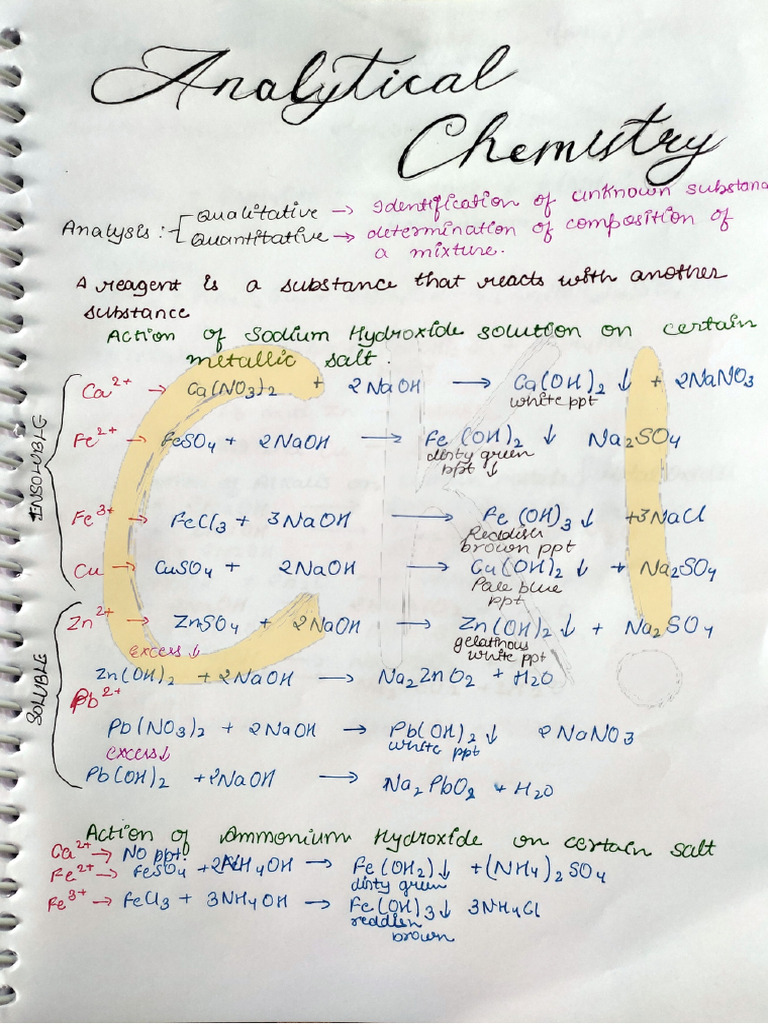 Analytical
Chemistry
Analysis: Qualitative → Identification of unknown substanc
Quantitative → determination of composition of
a mixture.
A reagent is a substance that reacts with another
substance
Action of Sodium Hydroxide solution on certain
metallic salt.
INSOLUBLE
Ca²⁺ → Ca(NO₃)₂ + 2NaOH → Ca(OH)₂ ↓ + 2NaNO₃
white ppt
Fe²⁺ → FeSO₄ + 2NaOH → Fe(OH)₂ ↓ Na₂SO₄
dirty green
ppt ↓
Fe³⁺ → FeCl₃ + 3NaOH → Fe(OH)₃ ↓ +3NaCl
Reddish
brown ppt
Cu → CuSO₄ + 2NaOH → Cu(OH)₂ ↓ + Na₂SO₄
Pale blue
ppt
SOLUBLE
Zn²⁺ → ZnSO₄ + 2NaOH → Zn(OH)₂ ↓ + Na₂SO₄
excess ↓ gelatinous
white ppt
Zn(OH)₂ + 2NaOH → Na₂ZnO₂ + H₂O
Pb²⁺
Pb(NO₃)₂ + 2NaOH → Pb(OH)₂ ↓ 2NaNO₃
excess ↓ white ppt
Pb(OH)₂ + 2NaOH → Na₂PbO₂ + H₂O
Action of Ammonium Hydroxide on certain salt
Ca²⁺ → No ppt.
Fe²⁺ → FeSO₄ + 2NH₄OH → Fe(OH₂) ↓ + (NH₄)₂SO₄
dirty green
Fe³⁺ → FeCl₃ + 3NH₄OH → Fe(OH)₃ ↓ 3NH₄Cl
reddish
brown